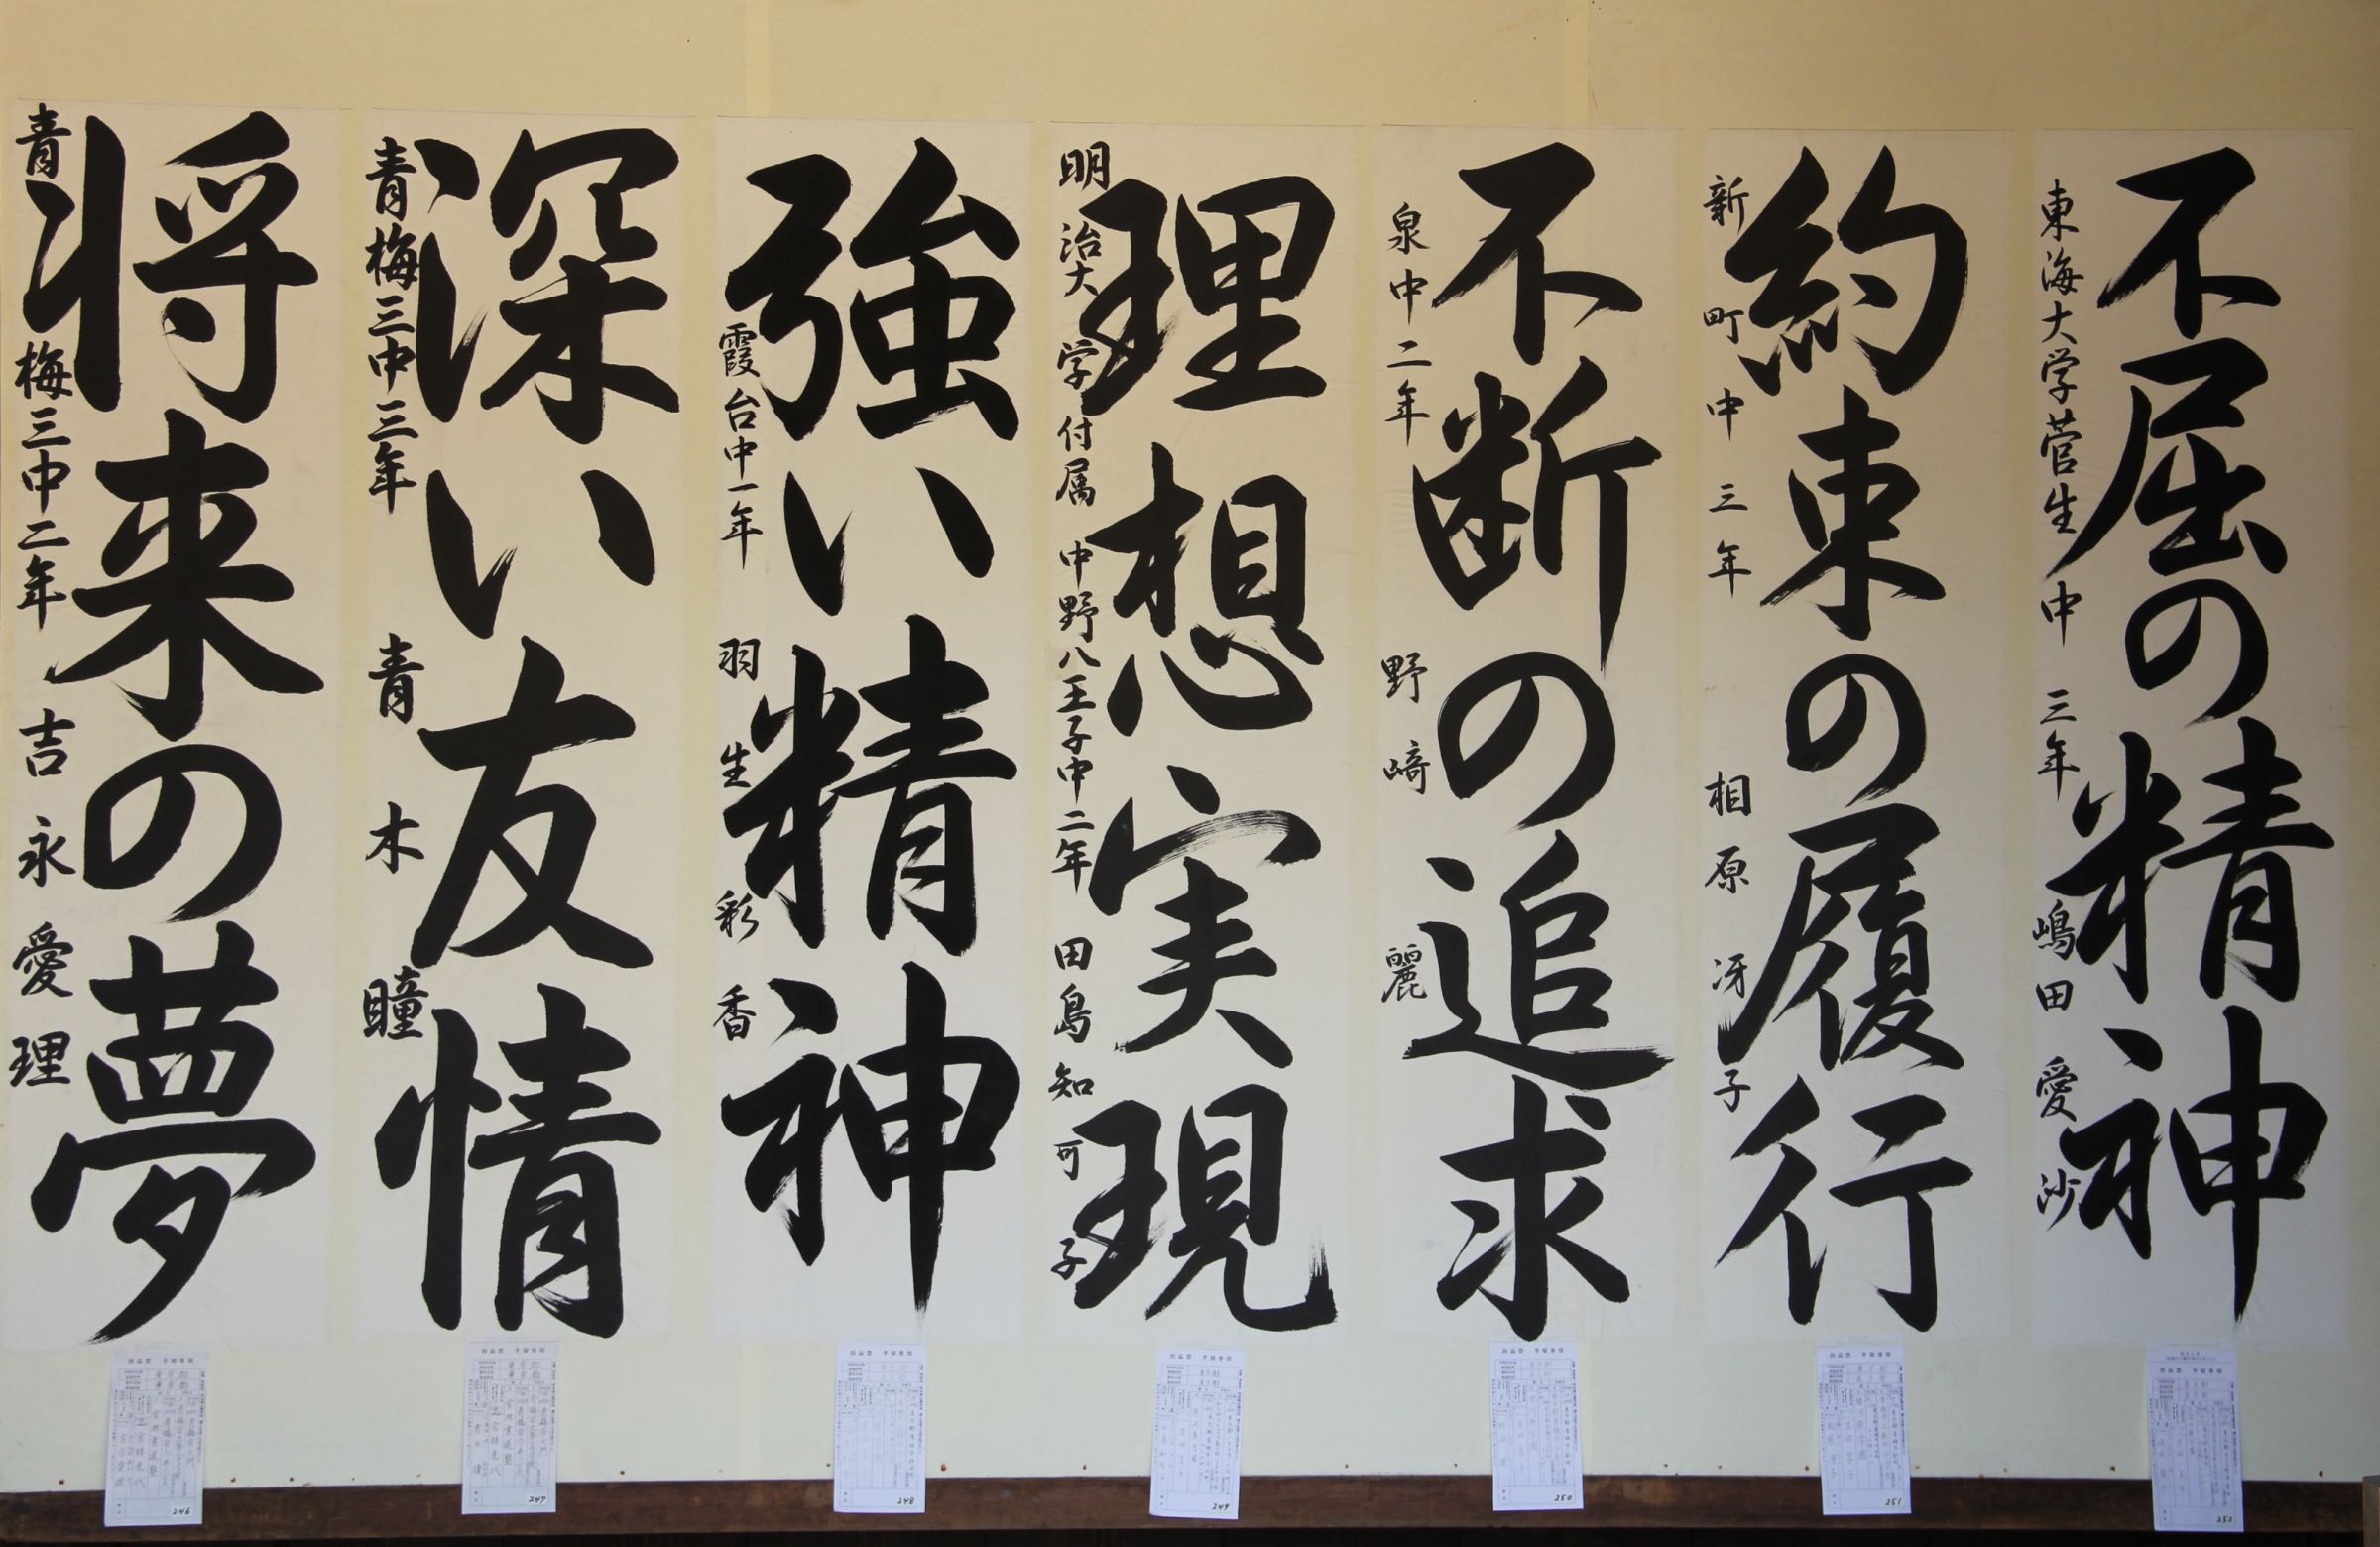 不屈の精神
東海大学菅生中三年 嶋田愛沙
約束の履行
新町中三年 相原冴子
不断の追求
泉中二年 野﨑麗
理想実現
明治大学付属中野八王子中二年 田島知可子
強い精神
霞台中一年 羽生彩香
深い友情
青梅三中三年 青木瞳
将来の夢
青梅三中二年 吉永愛理
252
251
250
249
248
247
246